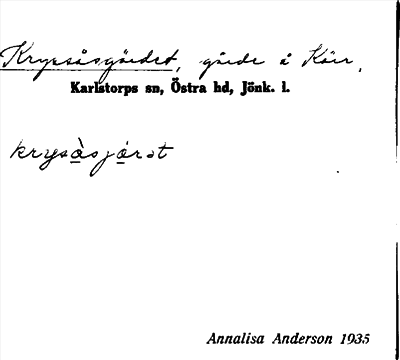 Kryssåsgärdet, gärde å Kärr,
Karlstorps sn, Östra hd, Jönk. l.
krysàsjárət
Annalisa Anderson 1935